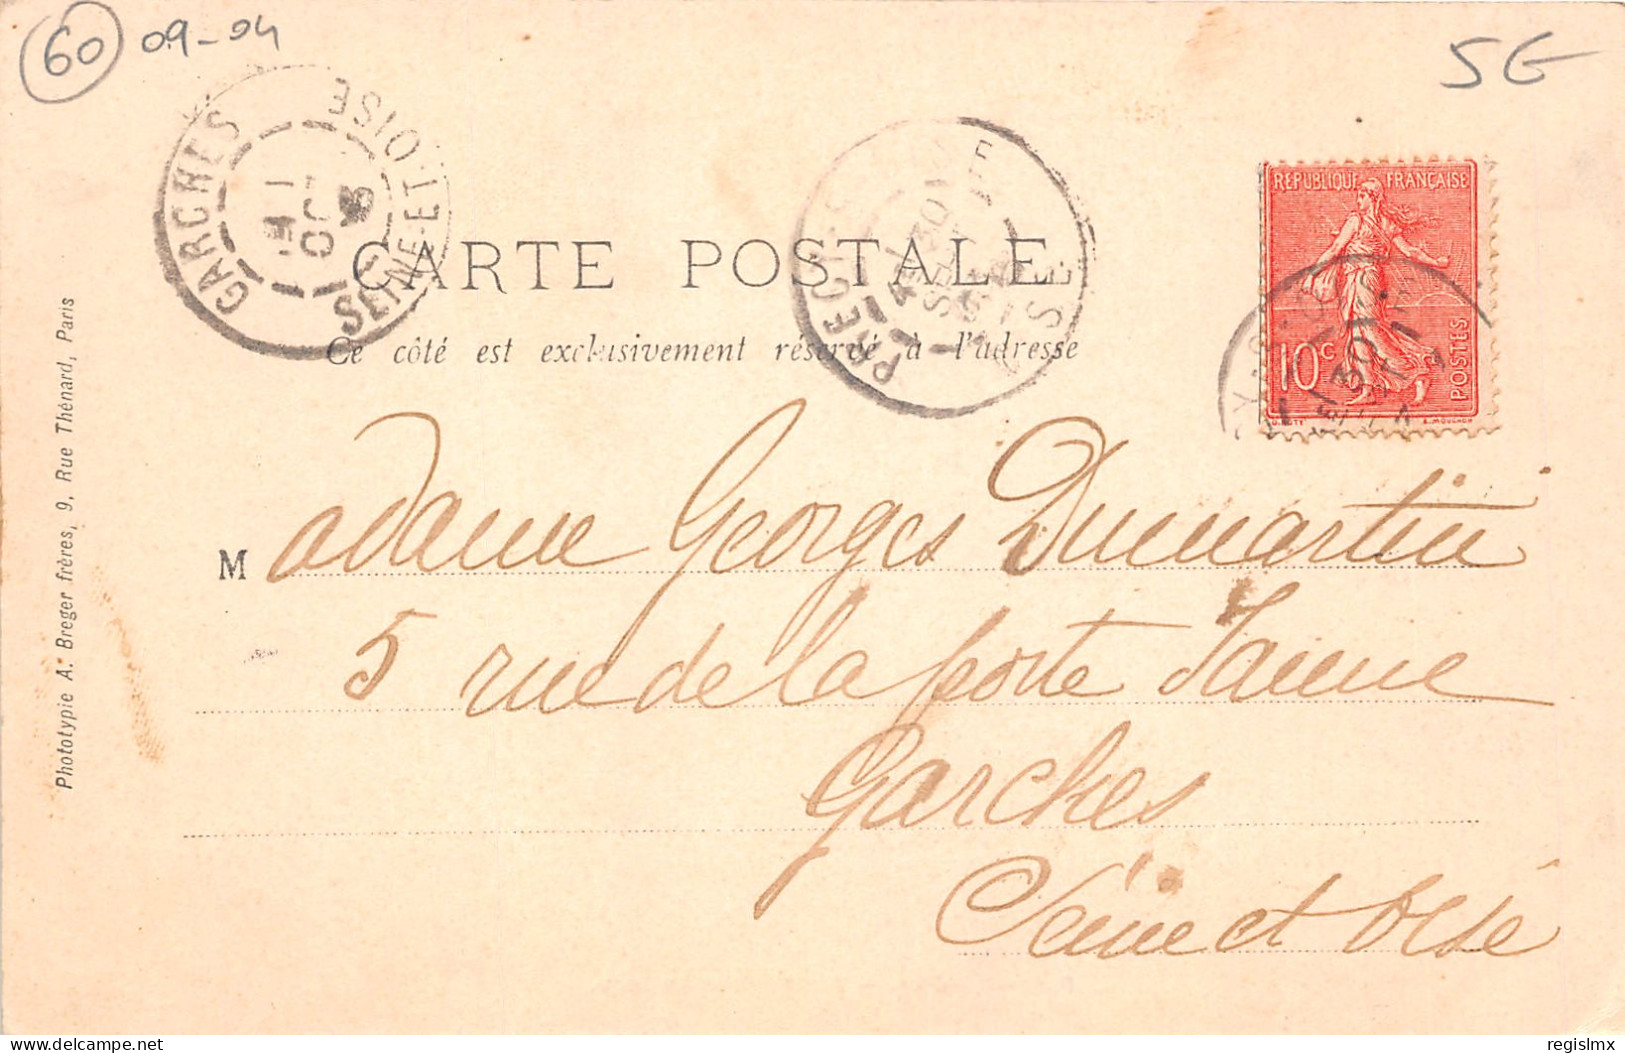 60 09-04
5€
GARCHES
SEINE-ET-OISE
OCT
RÉPUBLIQUE FRANÇAISE
10 C
POSTES
O. ROTY
E. MOUCHON
PRÉCY-S
OISE
30
SEPT
CARTE POSTALE
Ce côté est exclusivement réservé à l'adresse
Madame Georges Dumartin
5 rue de la porte Jaune
Garches
Seine et Oise
Phototypie A. Breger frères, 9, Rue Thénard, Paris
delcampe.net
regislmx